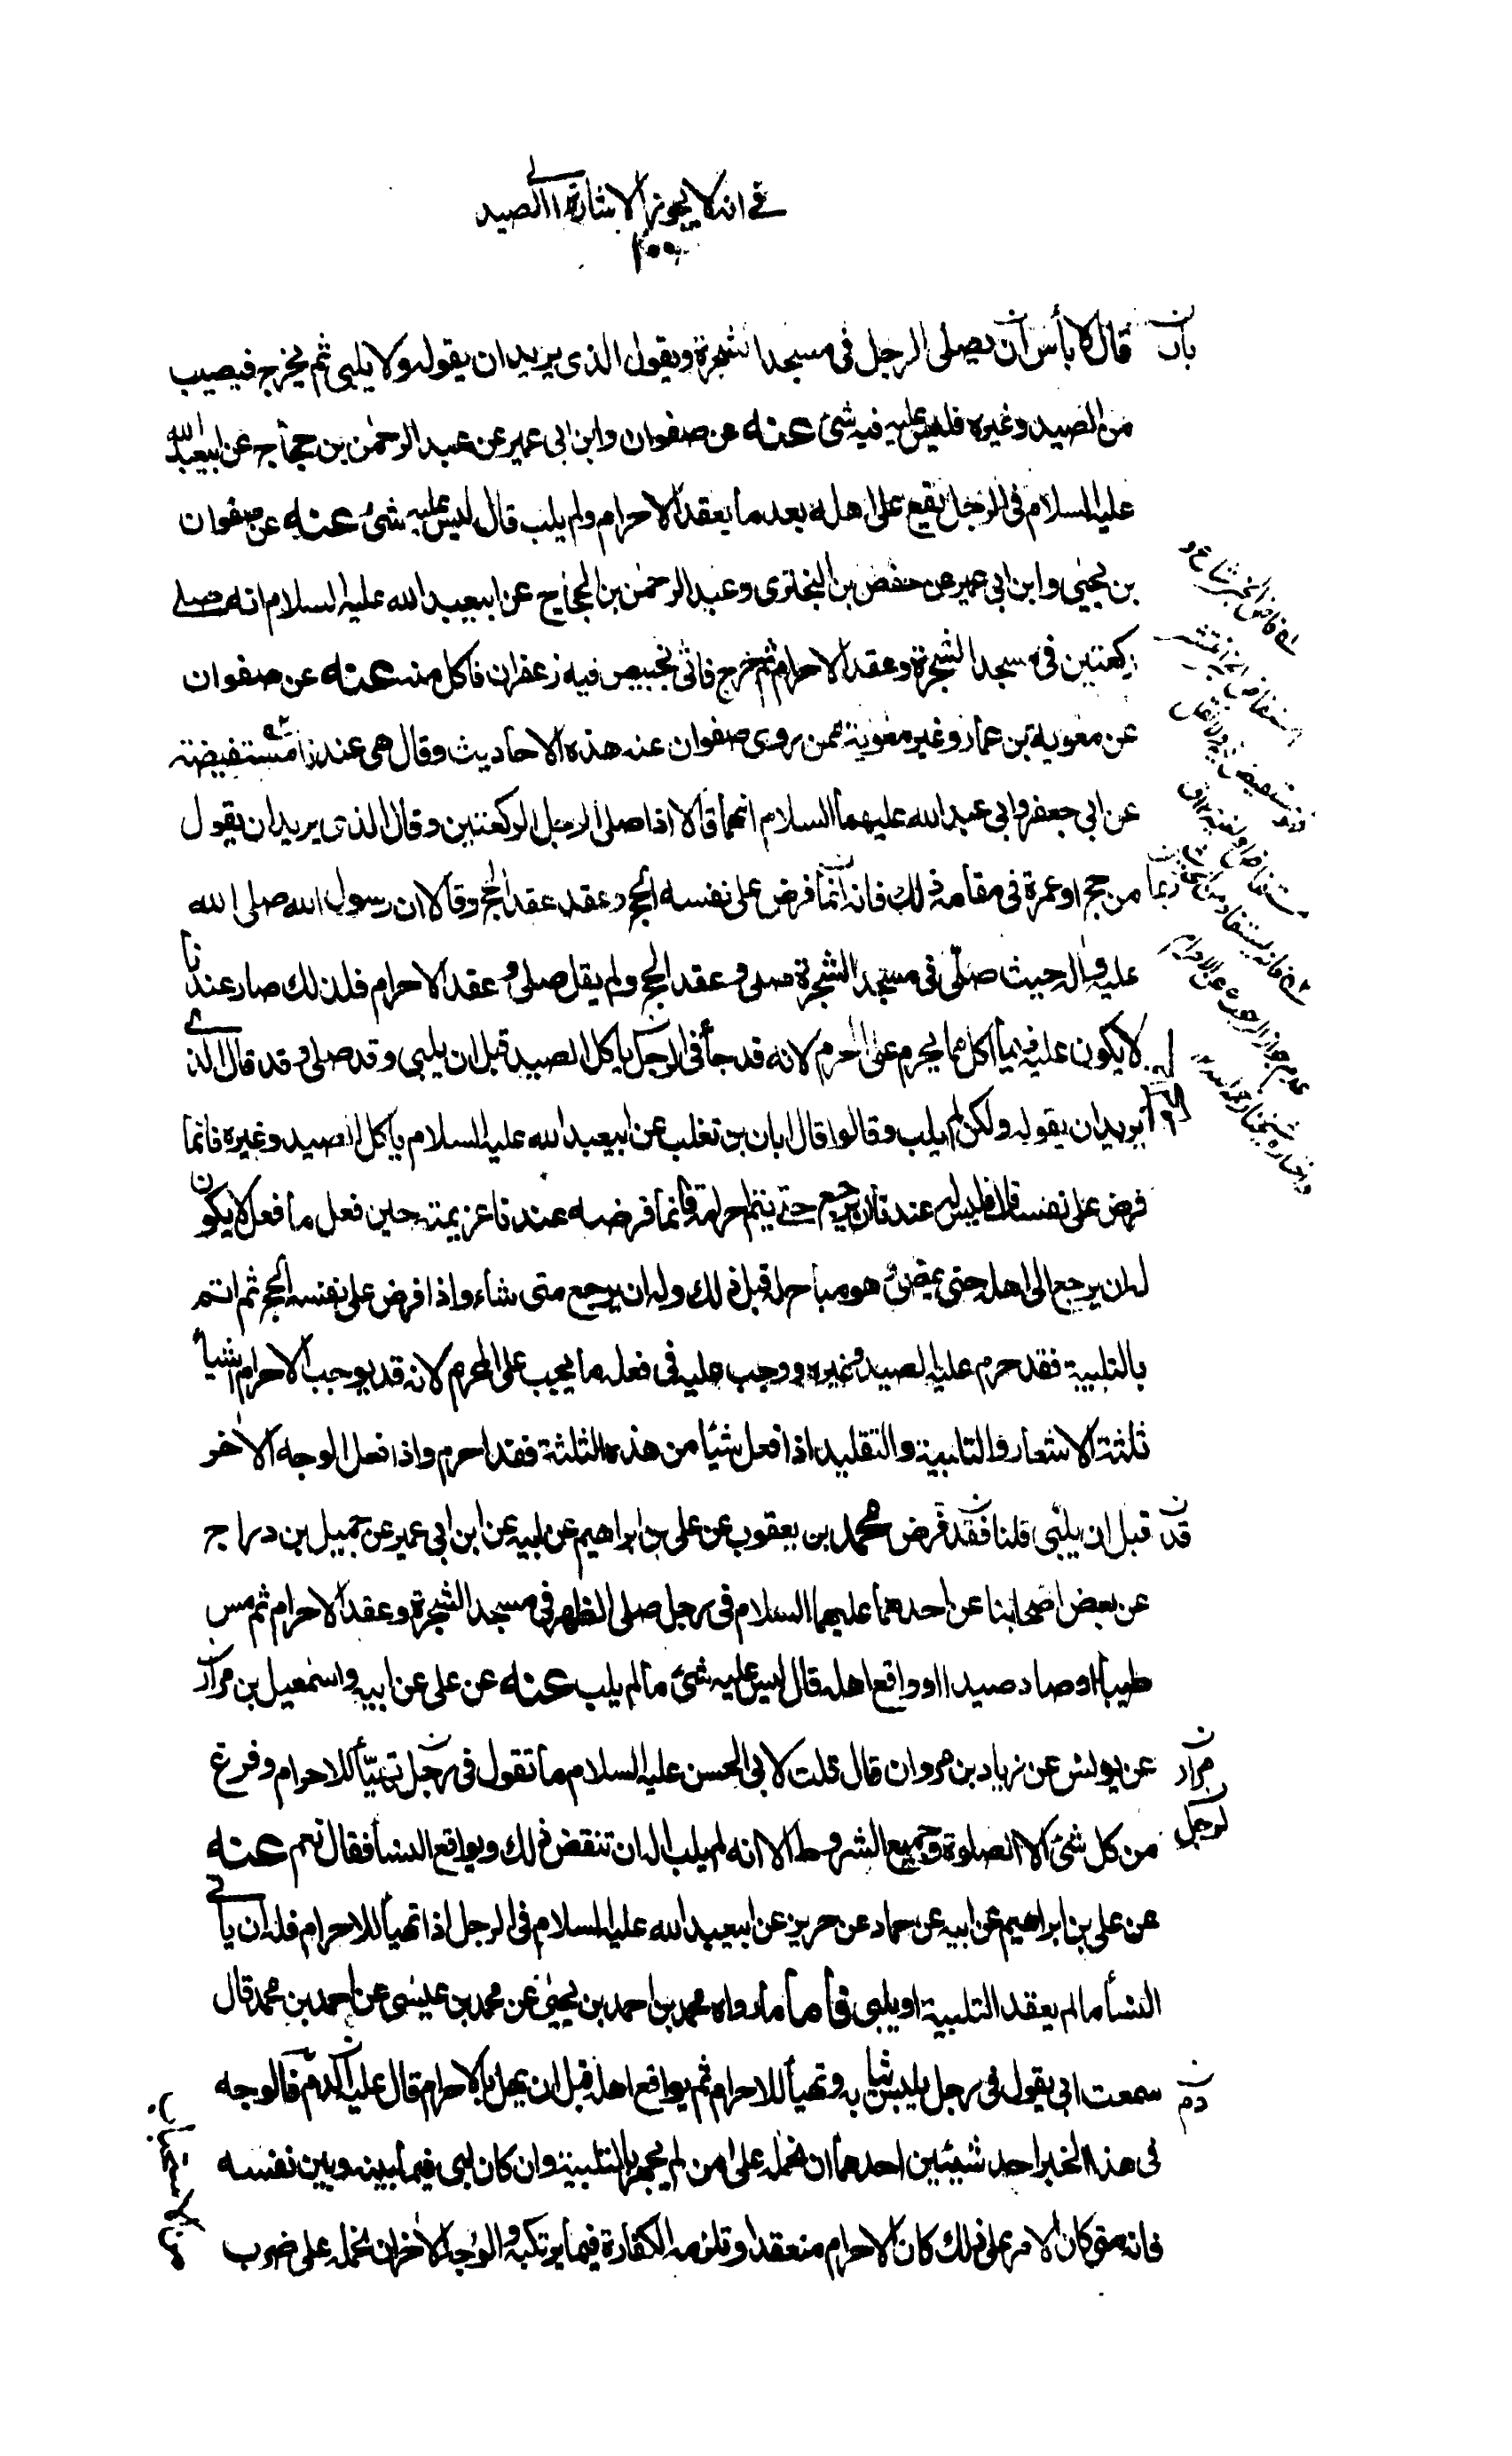 في انه لا يجوز الاشارة الى الصيد
بان
قال لا بأس ان يصلى الرجل فى مسجد الشجرة ويقول الذى يريد ان يقوله ولا يلبى ثم يخرج فيصيب
من الصيد وغيره فليس عليه فيه شئ عنه عن صفوان وابن ابى عمير عن عبد الرحمن بن حجاج عن ابيعبد الله
عليه السلام فى الرجل يقع على اهله بعد ما يعقد الاحرام ولم يلب قال ليس عليه شئ عنه عن صفوان
بن يحيى وابن ابى عمير عن حفص بن البخترى وعبد الرحمن بن الحجاج عن ابيعبد الله عليه السلام انه صلى
ركعتين فى مسجد الشجرة وعقد الاحرام ثم خرج فاتى بخبيص فيه زعفران فاكل منه عنه عن صفوان
عن معوية بن عمار وغير معوية ممن روى صفوان عنه هذه الاحاديث وقال هى عندنا مستفيضة
عن ابى جعفر وابى عبد الله عليهما السلام انهما قالا اذا صلى الرجل الركعتين وقال الذى يريد ان يقول
ربما
من حج او عمرة فى مقامه ذلك فانه انما فرض على نفسه الحج وعقد عقد الحج وقالا ان رسول الله صلى الله
عليه وآله حيث صلى فى مسجد الشجرة صلى وعقد الحج ولم يقل صلى وعقد الاحرام فلذلك صار عندنا
لا يكون عليه فيما اكل مما يحرم على المحرم لانه قد جاء فى الرجل ياكل الصيد قبل ان يلبى وقد صلى وقد قال الذى
يريد ان يقوله ولكن لم يلب وقالوا قال ابان بن تغلب عن ابيعبد الله عليه السلام ياكل الصيد وغيره فانما
فرض على نفسه الذى فليس له عندنا ان يرجع حتى يتم احرامه فانما فرضه عندنا عزيمته حين فعل ما فعل لا يكون
له ان يرجع الى اهله حتى يمضى وهو مباح له قبل ذلك وله ان يرجع متى شاء واذا فرض على نفسه الحج ثم اتم
بالتلبية فقد حرم عليه الصيد وغيره ووجب عليه فى فعله ما يجب على المحرم لانه قد يوجب الاحرام اشياء
ثلثة الاشعار والتلبية والتقليد اذا فعل شيئا من هذه الثلثة فقد احرم واذا فعل الوجه الاخر
قد
قبل ان يلبى قلنا فقد فرض محمد بن يعقوب عن على بن ابراهيم عن ابيه عن ابن ابى عمير عن جميل بن دراج
عن بعض اصحابنا عن احدهما عليهما السلام فى رجل صلى الظهر فى مسجد الشجرة وعقد الاحرام ثم مس
طيبا او صاد صيدا او واقع اهله قال ليس عليه شئ ما لم يلب عنه عن على عن ابيه واسمعيل بن مرار
مرار
عن يونس عن زياد بن مروان قال قلت لابى الحسن عليه السلام ما تقول فى رجل تهيأ للاحرام وفرغ
لرجل
من كل شئ الا الصلوة وجميع الشروط الا انه لم يلب اله ان ينقض ذلك ويواقع النساء فقال نعم عنه
عن على بن ابراهيم عن ابيه عن حماد عن حريز عن ابيعبد الله عليه السلام فى الرجل اذا تهيأ للاحرام فله ان ياتى
النساء ما لم يعقد التلبية او يلبى فأما ما رواه محمد بن احمد بن يحيى عن محمد بن عيسى عن احمد بن محمد قال
دم
سمعت ابى يقول فى رجل يلبس ثيابه وتهيأ للاحرام ثم يواقع اهله قبل ان يهل بالاحرام قال عليه الدم فالوجه
فى هذا الخبر احد شيئين احدهما ان نحمله على من لم يجهر بالتلبية وان كان لبى فيما بينه وبين نفسه
فانه متى كان الامر على ذلك كان الاحرام منعقدا وتلزمه الكفارة فيما يرتكبه والوجه الاخر ان نحمله على ضرب